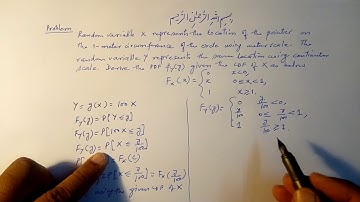 بسم الله الرحمن الرحيم
Problem
Random variable X represents the location of the pointer on
the 1-meter circumference of the circle using meter scale. The
random variable Y represents the same using centimeter
scale. Derive the PDF f_Y(y) given the CDF of X as below
F_X(x) = { 0 x<0,
x 0≤x<1,
1 x≥1
Y = g(X) = 100 X
F_Y(y) = P[Y ≤ y]
F_Y(y) = P[100X ≤ y]
F_Y(y) = P[X ≤ y/100]
P[ = F_X(c)
P[X ≤ y/100] = F_X(y/100)
using the given CDF of X
F_Y(y) = { 0 y/100 < 0,
y/100 0 ≤ y/100 < 1,
1 y/100 ≥ 1.